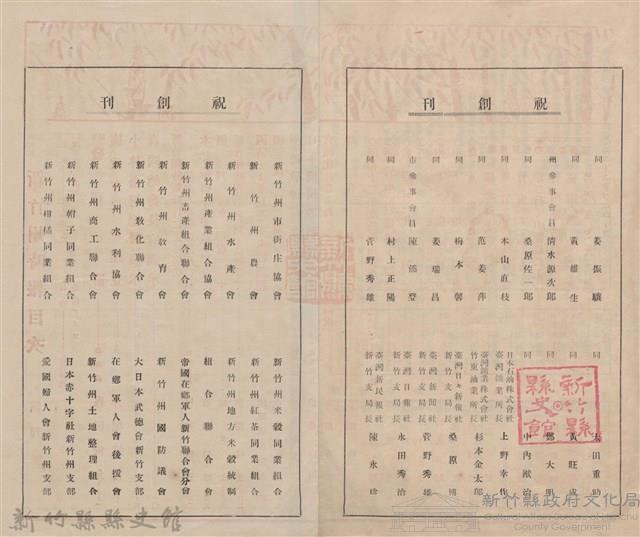 祝創刊
同 姜振驤
同 黃維生
州參事會員 清水源次郎
同 桑原佐一郎
同 本山直枝
同 范姜萍
同 梅本馨
同 姜瑞昌
市參事會員 陳添登
同 村上正陽
同 菅野秀雄
同 太田重助
同 黃旺成
同 鄭大明
同 中內
日本石油株式會社臺灣鑛業所長 上野幸作
臺灣鑛業株式會社竹東油業所長 杉本金太郎
臺灣日々新報社新竹支局長 桑原博
臺灣新聞社新竹支局長 菅野秀雄
臺灣日報社新竹支局長 永田秀治
臺灣新民報社新竹支局長 陳永珍
新竹縣縣史館
祝創刊
新竹州市街庄協會
新竹州農會
新竹州水產會
新竹州產業組合協會
新竹州畜產組合聯合會
新竹州教育會
新竹州教化聯合會
新竹州水利協會
新竹州商工聯合會
新竹州帽子同業組合
新竹州柑橘同業組合
新竹州米穀同業組合
新竹州紅茶同業組合
新竹州地方米穀統制
組合聯合會
帝國在鄉軍人新竹聯合會分會
新竹州國防議會
大日本武德會新竹支部
在鄉軍人會後援會
新竹州土地整理組合
日本赤十字社新竹州支部
愛國婦人會新竹州支部
新竹縣縣史館
新竹縣政府文化局
Cultural Affairs Bureau, Hsinchu
County Government